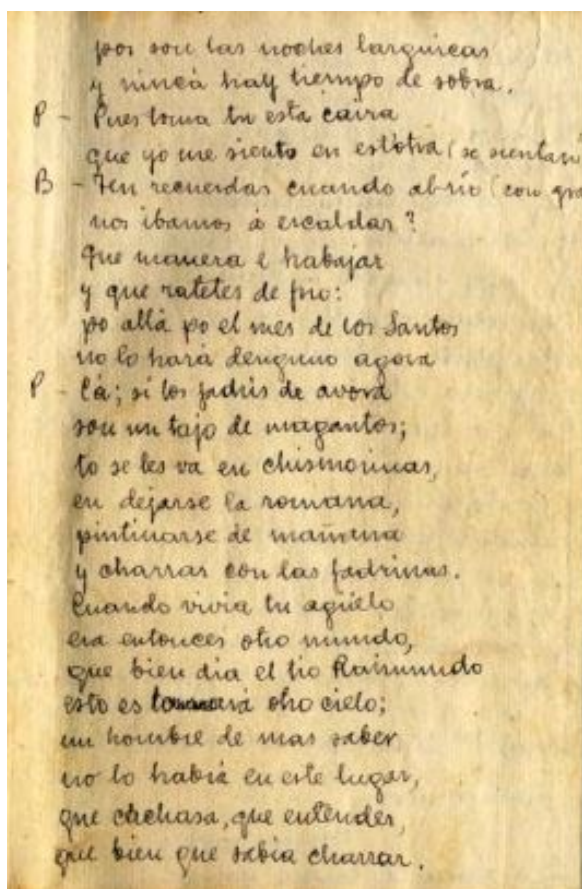 pos son las noches larguicas
y nincá hay tiempo de sobra.
P - Pues toma tu esta caira
que yo me siento en est'otra (se sientan)
B - Ten recuerdas cuando abrio (con gra
nos ibamos á escaldar?
Que manera e trabajar
y que ratetes de frio:
po allá po el mes de los Santos
no lo hará denguno agora
P - Cá; si los fadris de avora
son un tajo de magantos;
to se les va en chismorinas,
en dejarse la romana,
pintinarse de mañana
y charrar con las fadrinas.
Cuando vivia tu agüelo
era entonces otro mundo,
que bien dia el tio Raimundo
esto es otro cielo;
un hombre de mas saber
no lo habiá en este lugar,
que cachasa, que entender,
que bien que sabia charrar.